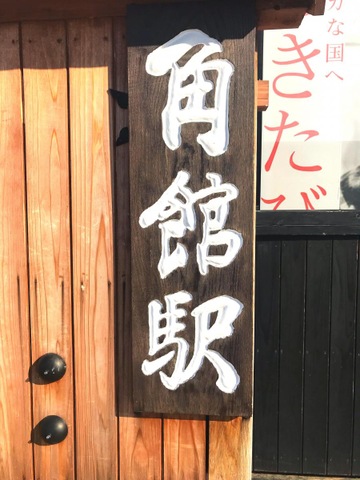 角館駅
かな国へ
きたび